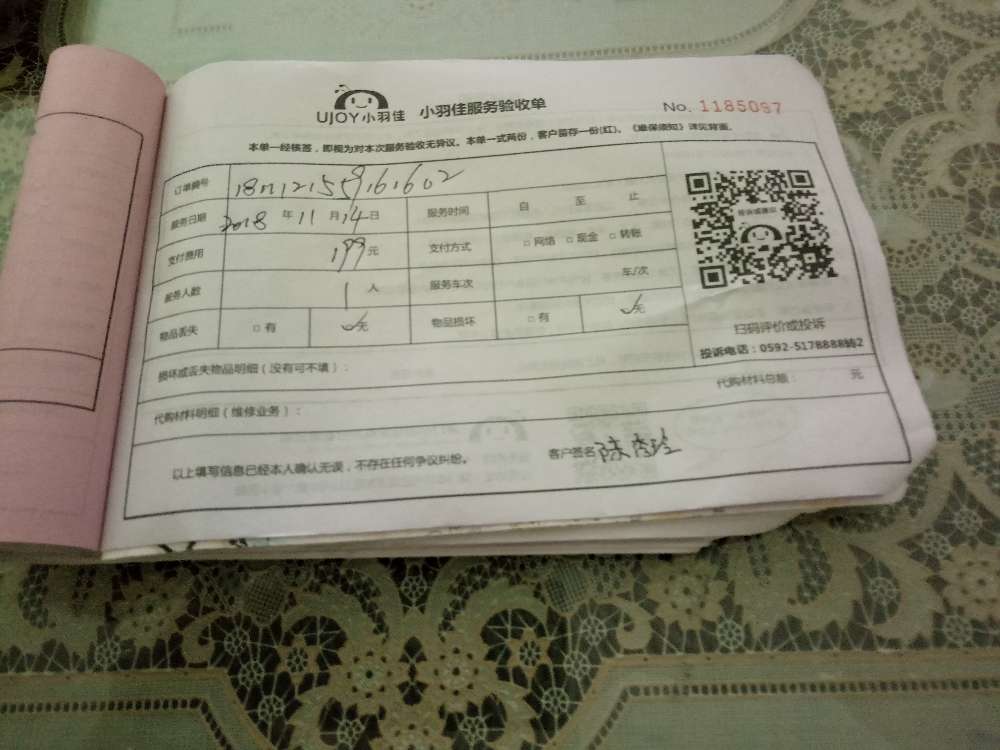 UJOY小羽佳 小羽佳服务验收单 No. 1185097
本单一经核签，即视为对本次服务验收无异议。本单一式两份，客户留存一份(红)。《维保须知》详见背面。
订单编号
服务日期 2018 年 11 月 14 日 服务时间 自 至 止
支付费用 199 元 支付方式 □ 网络 □ 现金 □ 转账
服务人数 1 人 服务车次 车/次
物品丢失 □ 有 ✓无 物品损坏 □ 有 ✓无
投诉或建议
扫码评价或投诉
投诉电话：0592-5178888转2
损坏或丢失物品明细（没有可不填）：
代购材料明细（维修业务）： 代购材料总额： 元
以上填写信息已经本人确认无误，不存在任何争议纠纷。 客户签名 陈秀玲